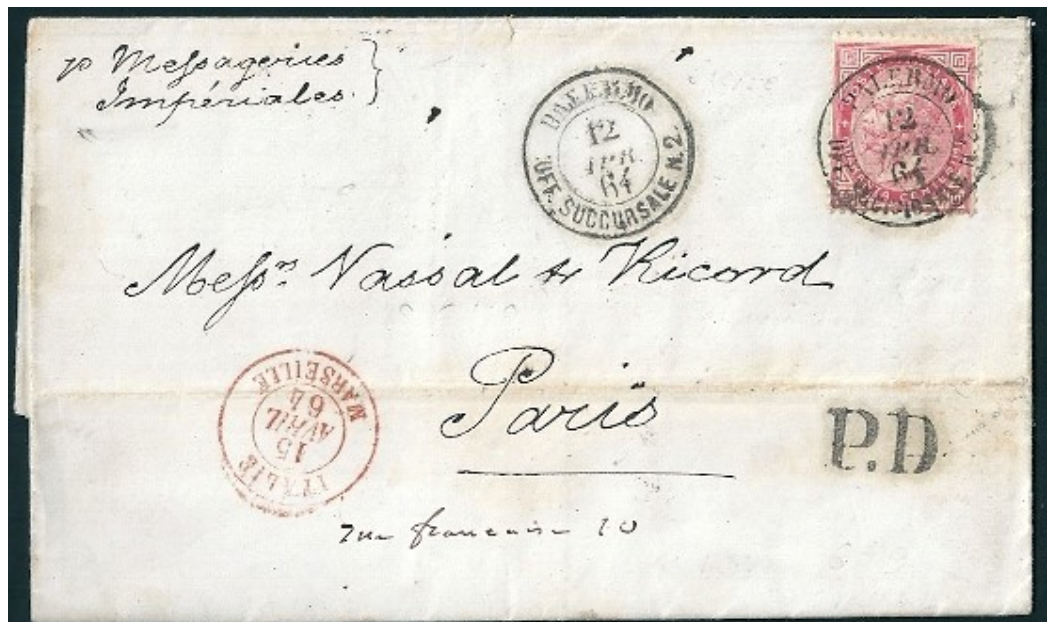 p Messageries
Impériales.
PALERMO
12
APR.
64
UFF. SUCCURSALE N.2.
PALERMO
12
APR.
64
UFF. SUCCURSALE N.2.
Messrs. Vassal & Ricord
Paris
ITALIE
15
AVRIL
64
MARSEILLE
P.D
rue française 10